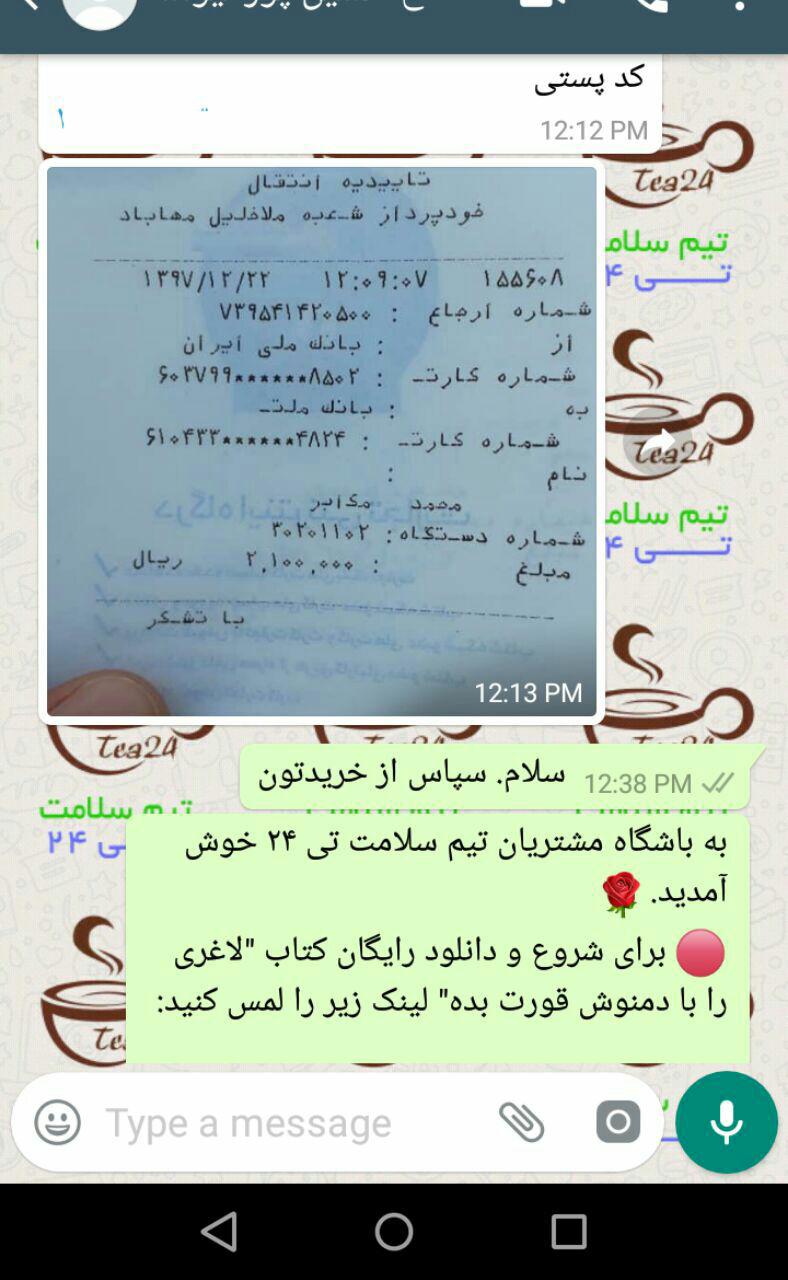 کد پستی
12:12 PM
تاییدیه انتقال
خودپرداز شعبه ملاخلیل مهاباد
۱۳۹۷/۱۲/۲۲ ۱۲:۰۹:۰۷ ۱۵۵۶۰۸
شماره ارجاع : ۷۳۹۵۴۱۴۲۰۵۰۰
از : بانك ملی ایران
شماره کارت : ۶۰۳۷۹۹******۸۵۰۲
به : بانك ملت
شماره کارت : ۶۱۰۴۳۳******۴۸۲۴
نام :
محمد مکابر
شماره دستگاه : ۳۰۲۰۱۱۰۲
مبلغ : ۲,۱۰۰,۰۰۰ ریال
با تشکر
12:13 PM
سلام. سپاس از خریدتون
12:38 PM
به باشگاه مشتریان تیم سلامت تی ۲۴ خوش
آمدید. 🌹
🔴 برای شروع و دانلود رایگان کتاب "لاغری
را با دمنوش قورت بده" لینک زیر را لمس کنید:
Type a message
Tea24
تیم سلامت
تی ۲۴